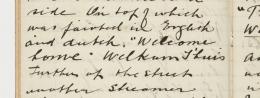 side on top of which
was painted in English
and dutch. "Welcome
home" Welkum Thuis
Further up the street
another Streamer